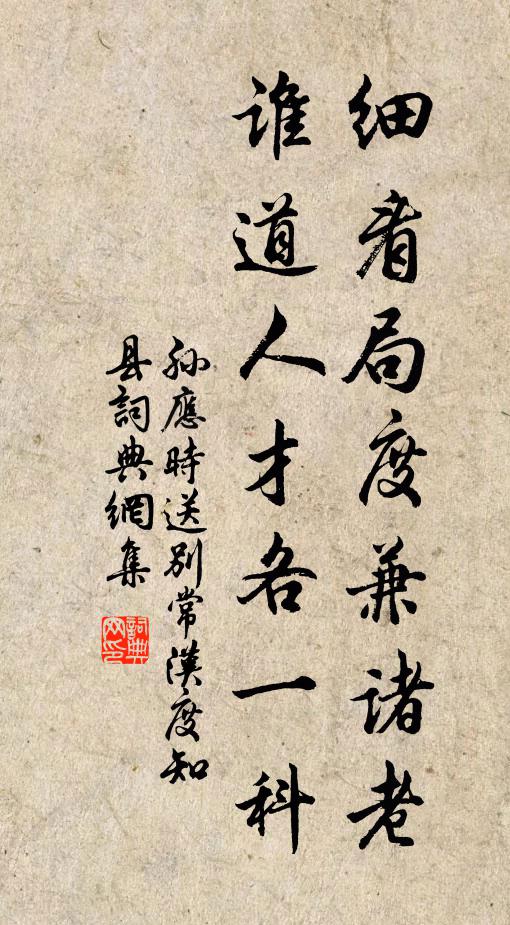 细看局度兼诸老
谁道人才各一科
孙應時送别常漢度知
县詞典網集
詞典网印